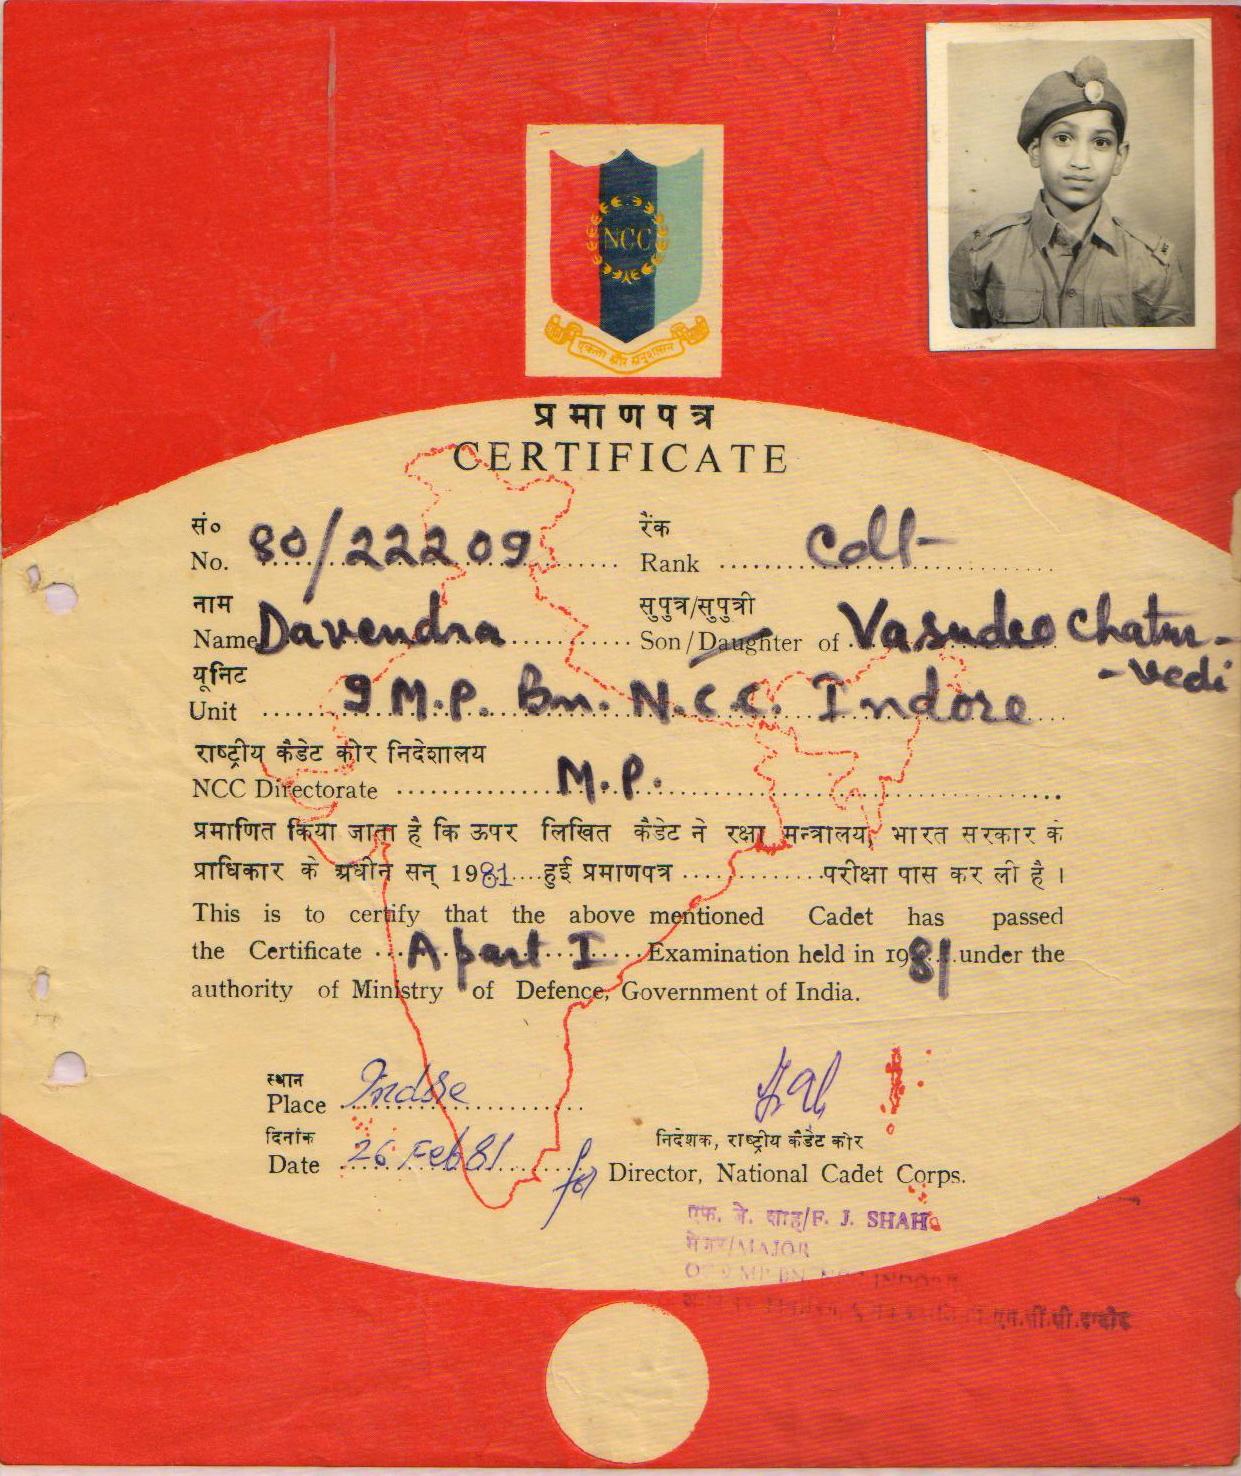 NCC
एकता और अनुशासन
प्रमाणपत्र
CERTIFICATE
सं०
No. 80/22209
रैंक
Rank Cdt
नाम
Name Davendra
सुपुत्र/सुपुत्री
Son/Daughter of Vasudeo Chatur-
-vedi
यूनिट
Unit 9 M.P. Bn. N.C.C. Indore
राष्ट्रीय कैडेट कोर निदेशालय
NCC Directorate M.P.
प्रमाणित किया जाता है कि ऊपर लिखित कैडेट ने रक्षा मन्त्रालय, भारत सरकार के
प्राधिकार के अधीन सन् 1981 हुई प्रमाणपत्र ............ परीक्षा पास कर ली है ।
This is to certify that the above mentioned Cadet has passed
the Certificate A part I Examination held in 1981 under the
authority of Ministry of Defence, Government of India.
स्थान
Place Indore
दिनांक
Date 26 Feb 81
निदेशक, राष्ट्रीय कैडेट कोर
for Director, National Cadet Corps.
एफ. जे. शाह/F. J. SHAH
मेजर/MAJOR
OC 9 MP BN NCC INDORE
एन.सी.सी.इन्दौर